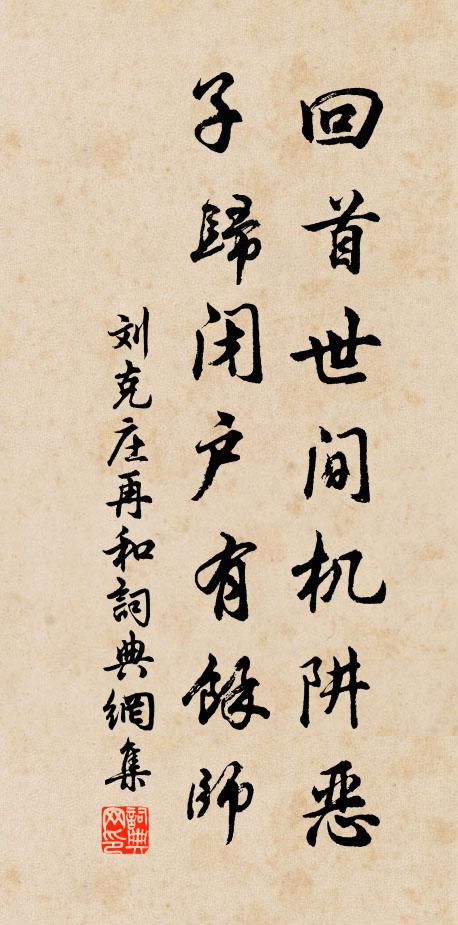 回首世间机阱恶
子歸闭户有餘师
刘克庄再和詞典網集
詞典网印